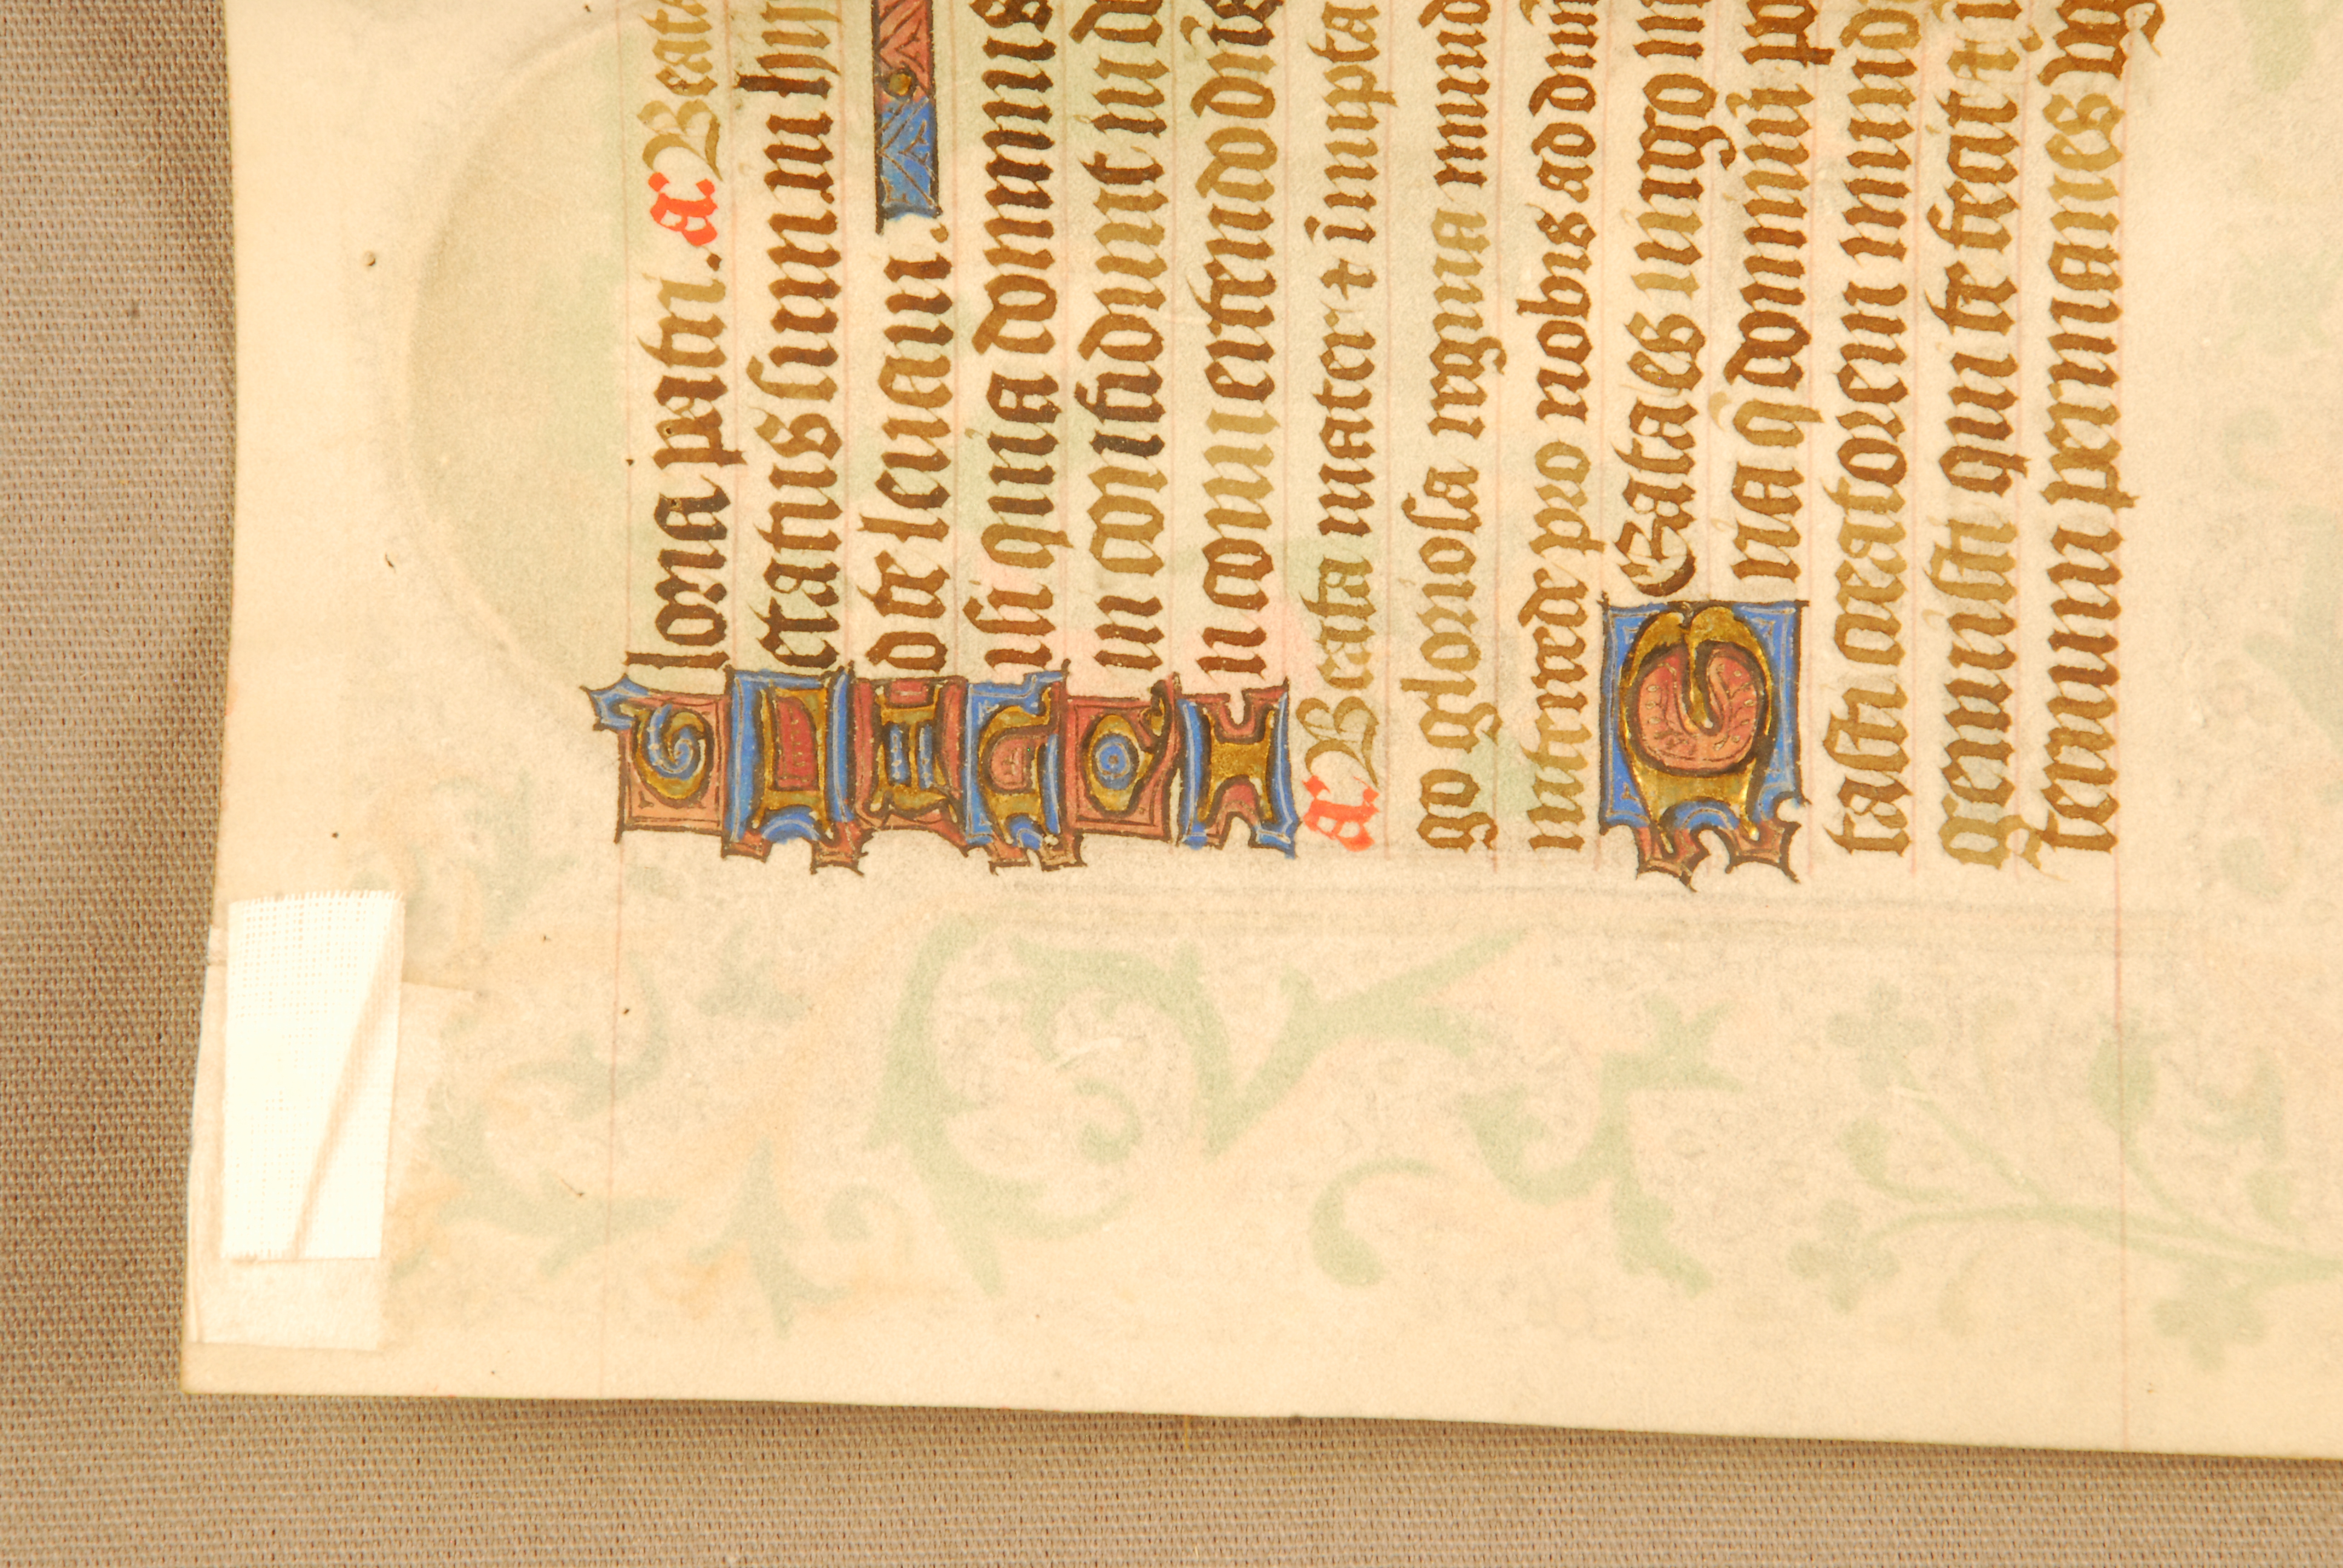 Gloria patri. a. Beata
Letatus sum in hii
Ad te leuaui.
Nisi quia dominus
Qui confidunt in do
In conuertendo
a. Beata mater ⁊ innupta
go gloriosa regina mund
intercede pro nobis ad dn̄m
Beata es uirgo m
ria q̄ dominū po
tasti creatorem mundi
genuisti qui te fecit ⁊ i
eternum permanes